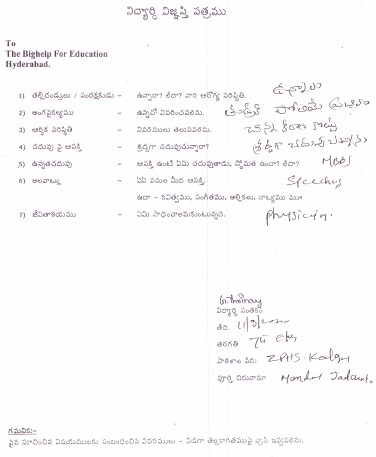 విద్యార్థి విజ్ఞప్తి పత్రము
To
The Bighelp For Education
Hyderabad.
1) తల్లిదండ్రులు / సంరక్షకుడు - ఉన్నారా? లేదా? వారి ఆరోగ్య పరిస్థితి. ఉన్నారు
2) అంగవైకల్యము - ఉన్నచో వివరించవలెను.
3) ఆర్థిక పరిస్థితి - వివరములు తెలుపవలెను.
4) చదువు పై ఆసక్తి - శ్రద్ధగా చదువుచున్నారా? శ్రద్ధగా
5) ఉన్నతచదువు - ఆసక్తి ఉంటే ఏమి చదువుతాడు, స్తోమత ఉందా? లేదా? MBBS
6) అలవాట్లు - ఏఏ పనుల మీద ఆసక్తి. Speeches
ఉదా - కవిత్వము, సంగీతము, అల్లికలు, నాట్యము మూ॥
7) జీవితాశయము - ఏమి సాధించాలనుకుంటున్నది. Physician.
విద్యార్థి సంతకం
తేది.
తరగతి 7th
పాఠశాల పేరు ZPHS.
పూర్తి చిరునామా Mandal
గమనిక:-
పైన సూచించిన విషయములకు సంబంధించిన వివరములు - విడిగా తెల్లకాగితముపై వ్రాసి ఇవ్వవలెను.